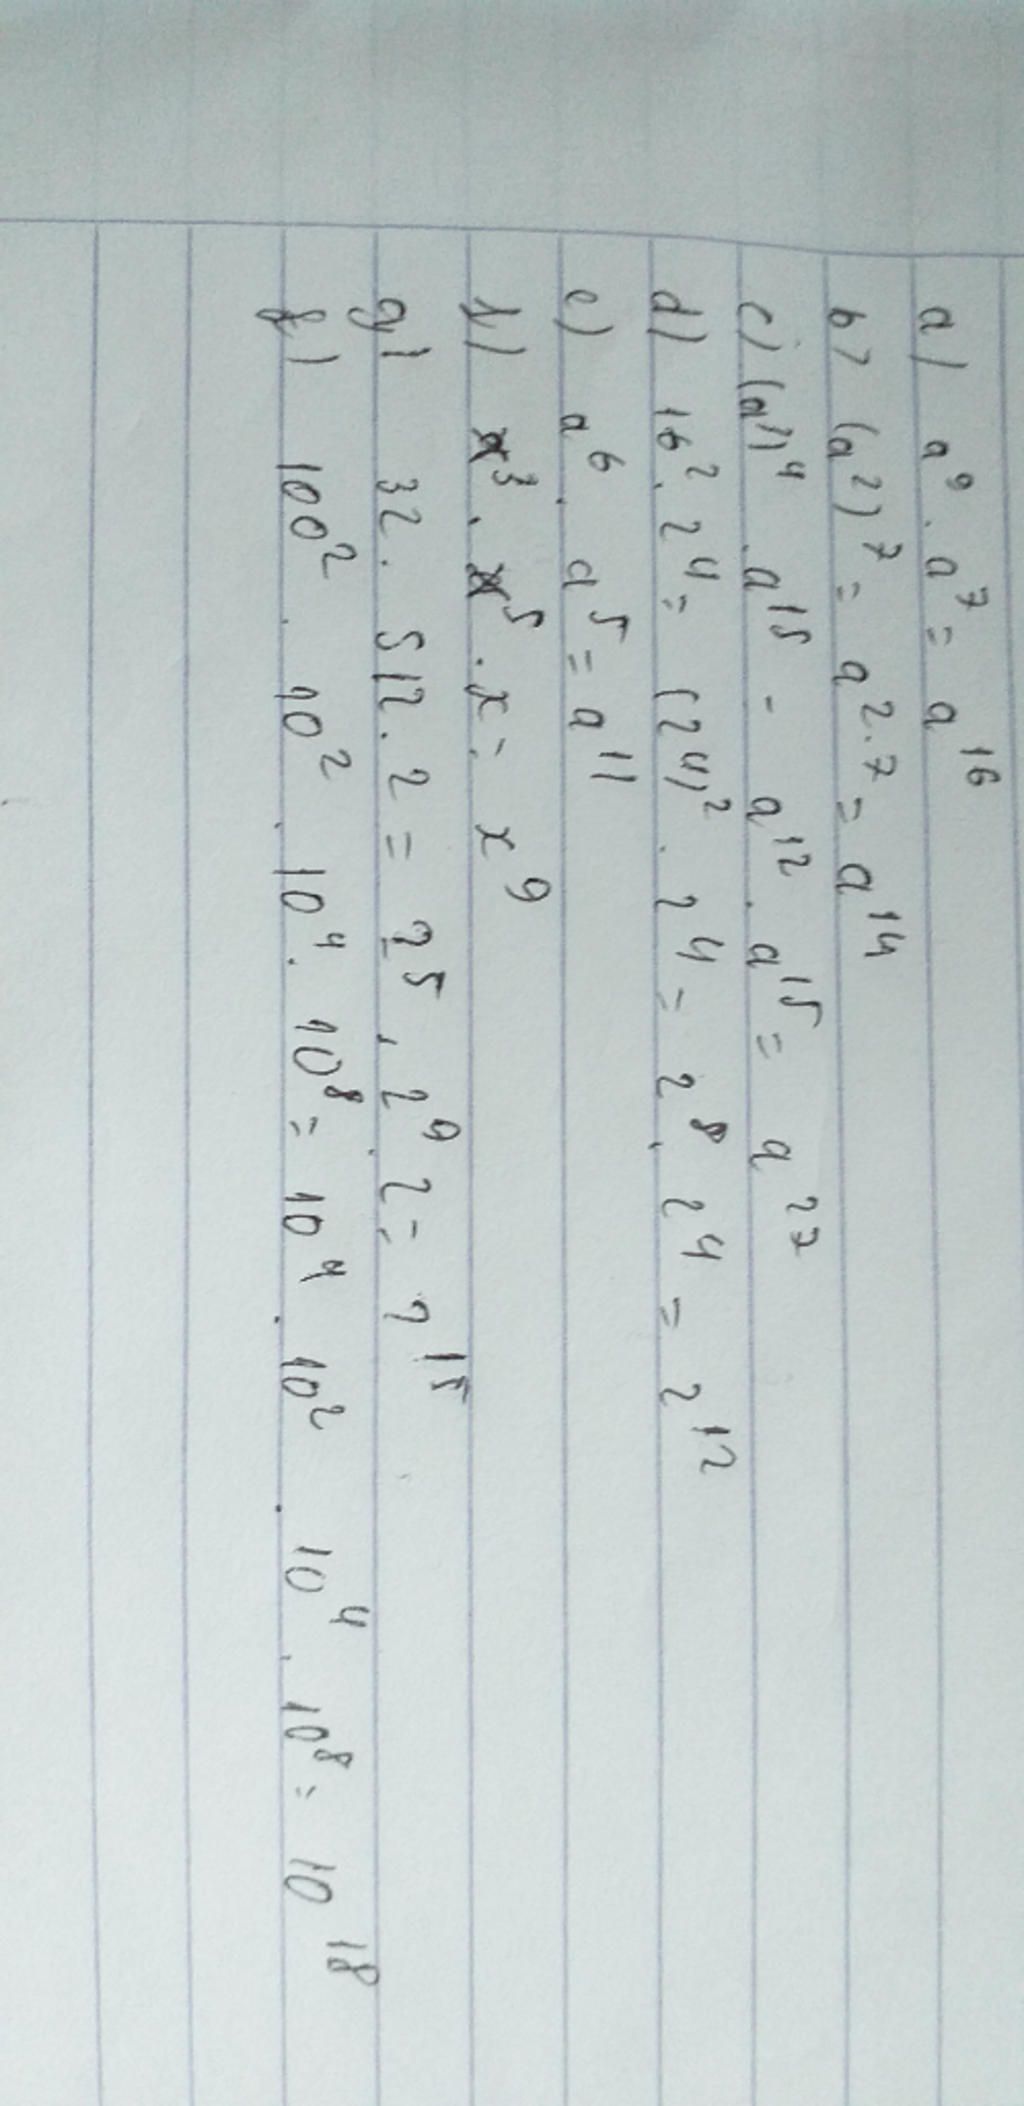 a) a⁹ . a⁷ = a¹⁶
b) (a²)⁷ = a²·⁷ = a¹⁴
c) (a³)⁴ . a¹⁵ = a¹² . a¹⁵ = a²⁷
d) 16² . 2⁴ = (2⁴)² . 2⁴ = 2⁸ . 2⁴ = 2¹²
e) a⁶ . a⁵ = a¹¹
f) x³ . x⁵ . x = x⁹
g) 32 . 512 . 2 = 2⁵ . 2⁹ . 2 = 2¹⁵
f) 100² . 10² . 10⁴ . 10⁸ = 10⁴ . 10² . 10⁴ . 10⁸ = 10¹⁸